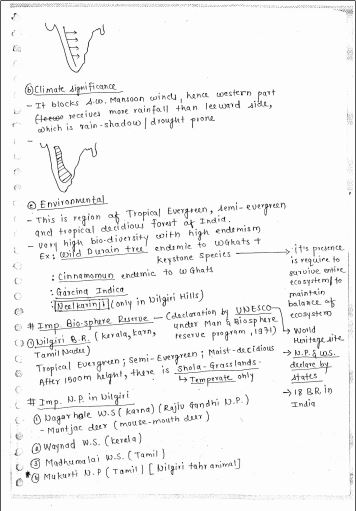 (b) Climate significance
- It blocks S.W. Mansoon winds, hence western part
receives more rainfall than leeward side,
which is rain-shadow / drought prone
-
(c) Environmental
- This is region of Tropical Evergreen, semi-evergreen
and tropical decidious forest of India.
- Very high bio-diversity with high endemism
Ex: Wild Durain tree endemic to W Ghats +
Keystone Species → it's presence
is require to
survive entire
ecosystem / to
maintain
balance of
ecosystem
: Cinnamomun endemic to W Ghats
: Garcina Indica
: Neelkurinji (only in Nilgiri Hills)
# Imp Bio-sphere Reserve - (declaration by UNESCO
under Man & Biosphere
reserve program, 1971)
→ World
Heritage site
→ N.P & W.S.
declare by
states
→ 18 B.R. in
India
① Nilgiri B.R. (kerala, karn,
Tamil Nadu)
Tropical Evergreen; Semi-Evergreen; Moist-decidious
After 1500m height, there is Shola-Grasslands-
↳ Temperate only
# Imp. N.P. in Nilgiri
① Nagarhole W.S (karna) (Rajiv Gandhi N.P.)
- Muntjac deer (mouse-mouth deer)
② Waynad W.S. (kerela)
③ Madhumalai W.S. (Tamil)
④ Mukurti N.P (Tamil) [Nilgiri tahr animal]